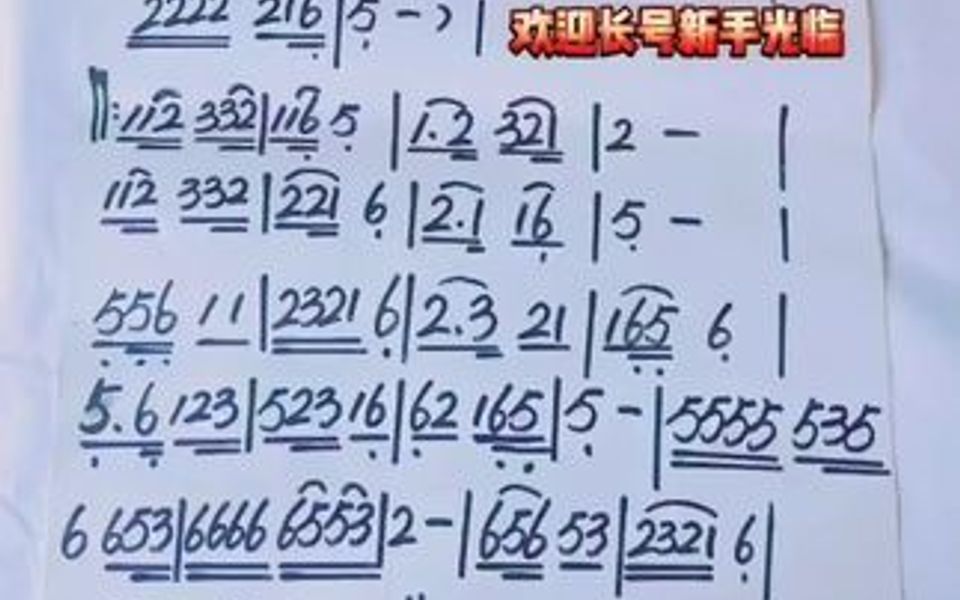 2222 216 | 5 - > |
欢迎长号新手光临
‖: 112 332 | 116 5 | 1.2 321 | 2 - |
112 332 | 221 6 | 2.1 16 | 5 - |
556 11 | 2321 6 | 2.3 21 | 165 6 |
5.6 123 | 523 16 | 62 165 | 5 - | 5555 535
6 653 | 6666 6553 | 2 - | 656 53 | 2321 6 |